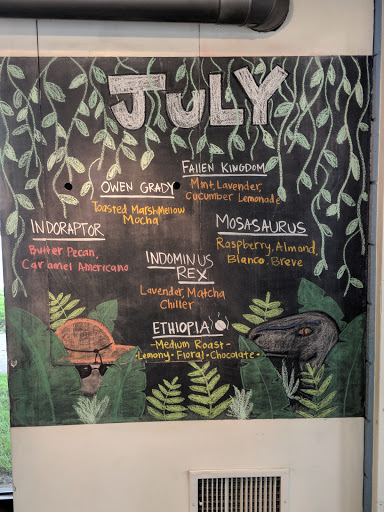 JULY
FALLEN KINGDOM
Mint, Lavender,
Cucumber Lemonade
OWEN GRADY
Toasted Marshmellow
Mocha
INDORAPTOR
Butter Pecan,
Caramel Americano
MOSASAURUS
Raspberry, Almond,
Blanco, Breve
INDOMINUS
REX
Lavender, Matcha
Chiller
ETHIOPIA
-Medium Roast-
•Lemony•Floral•Chocolate•